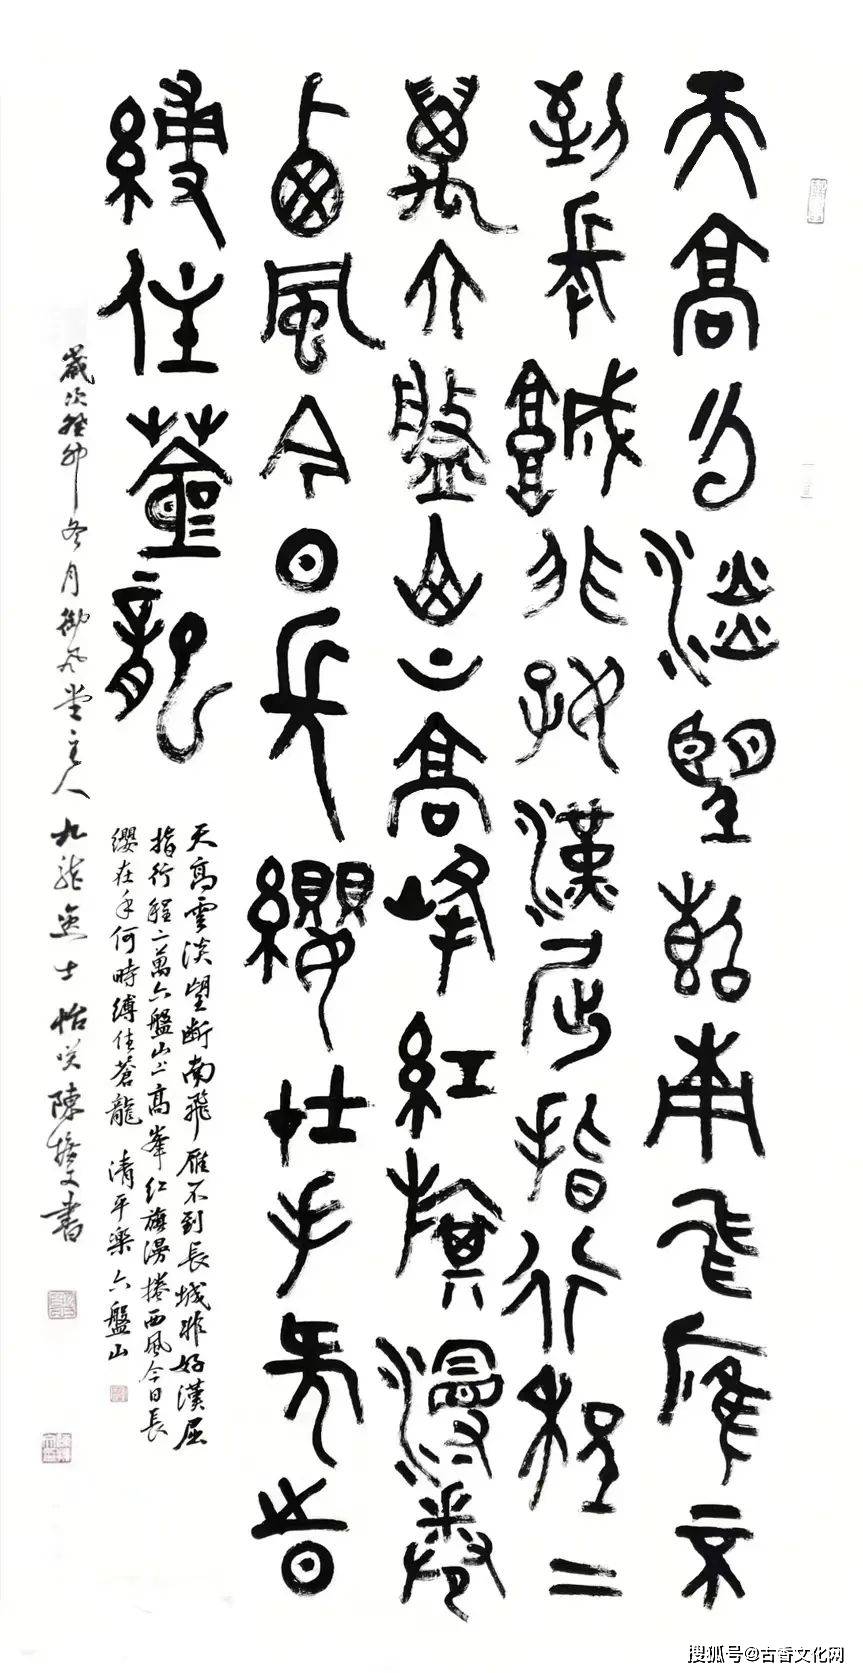 天高雲淡望斷南飛雁不
到長城非好漢屈指行程二
萬六盤山上高峰紅旗漫卷
西風今日長纓在手何時
縛住蒼龍
天高雲淡望斷南飛雁不到長城非好漢屈
指行程二萬六盤山上高峯紅旗漫捲西風今日長
纓在手何時縛住蒼龍 清平樂 六盤山
歲次癸卯冬月御風堂主人九龍逸士怡咲陳書
搜狐号@古香文化网